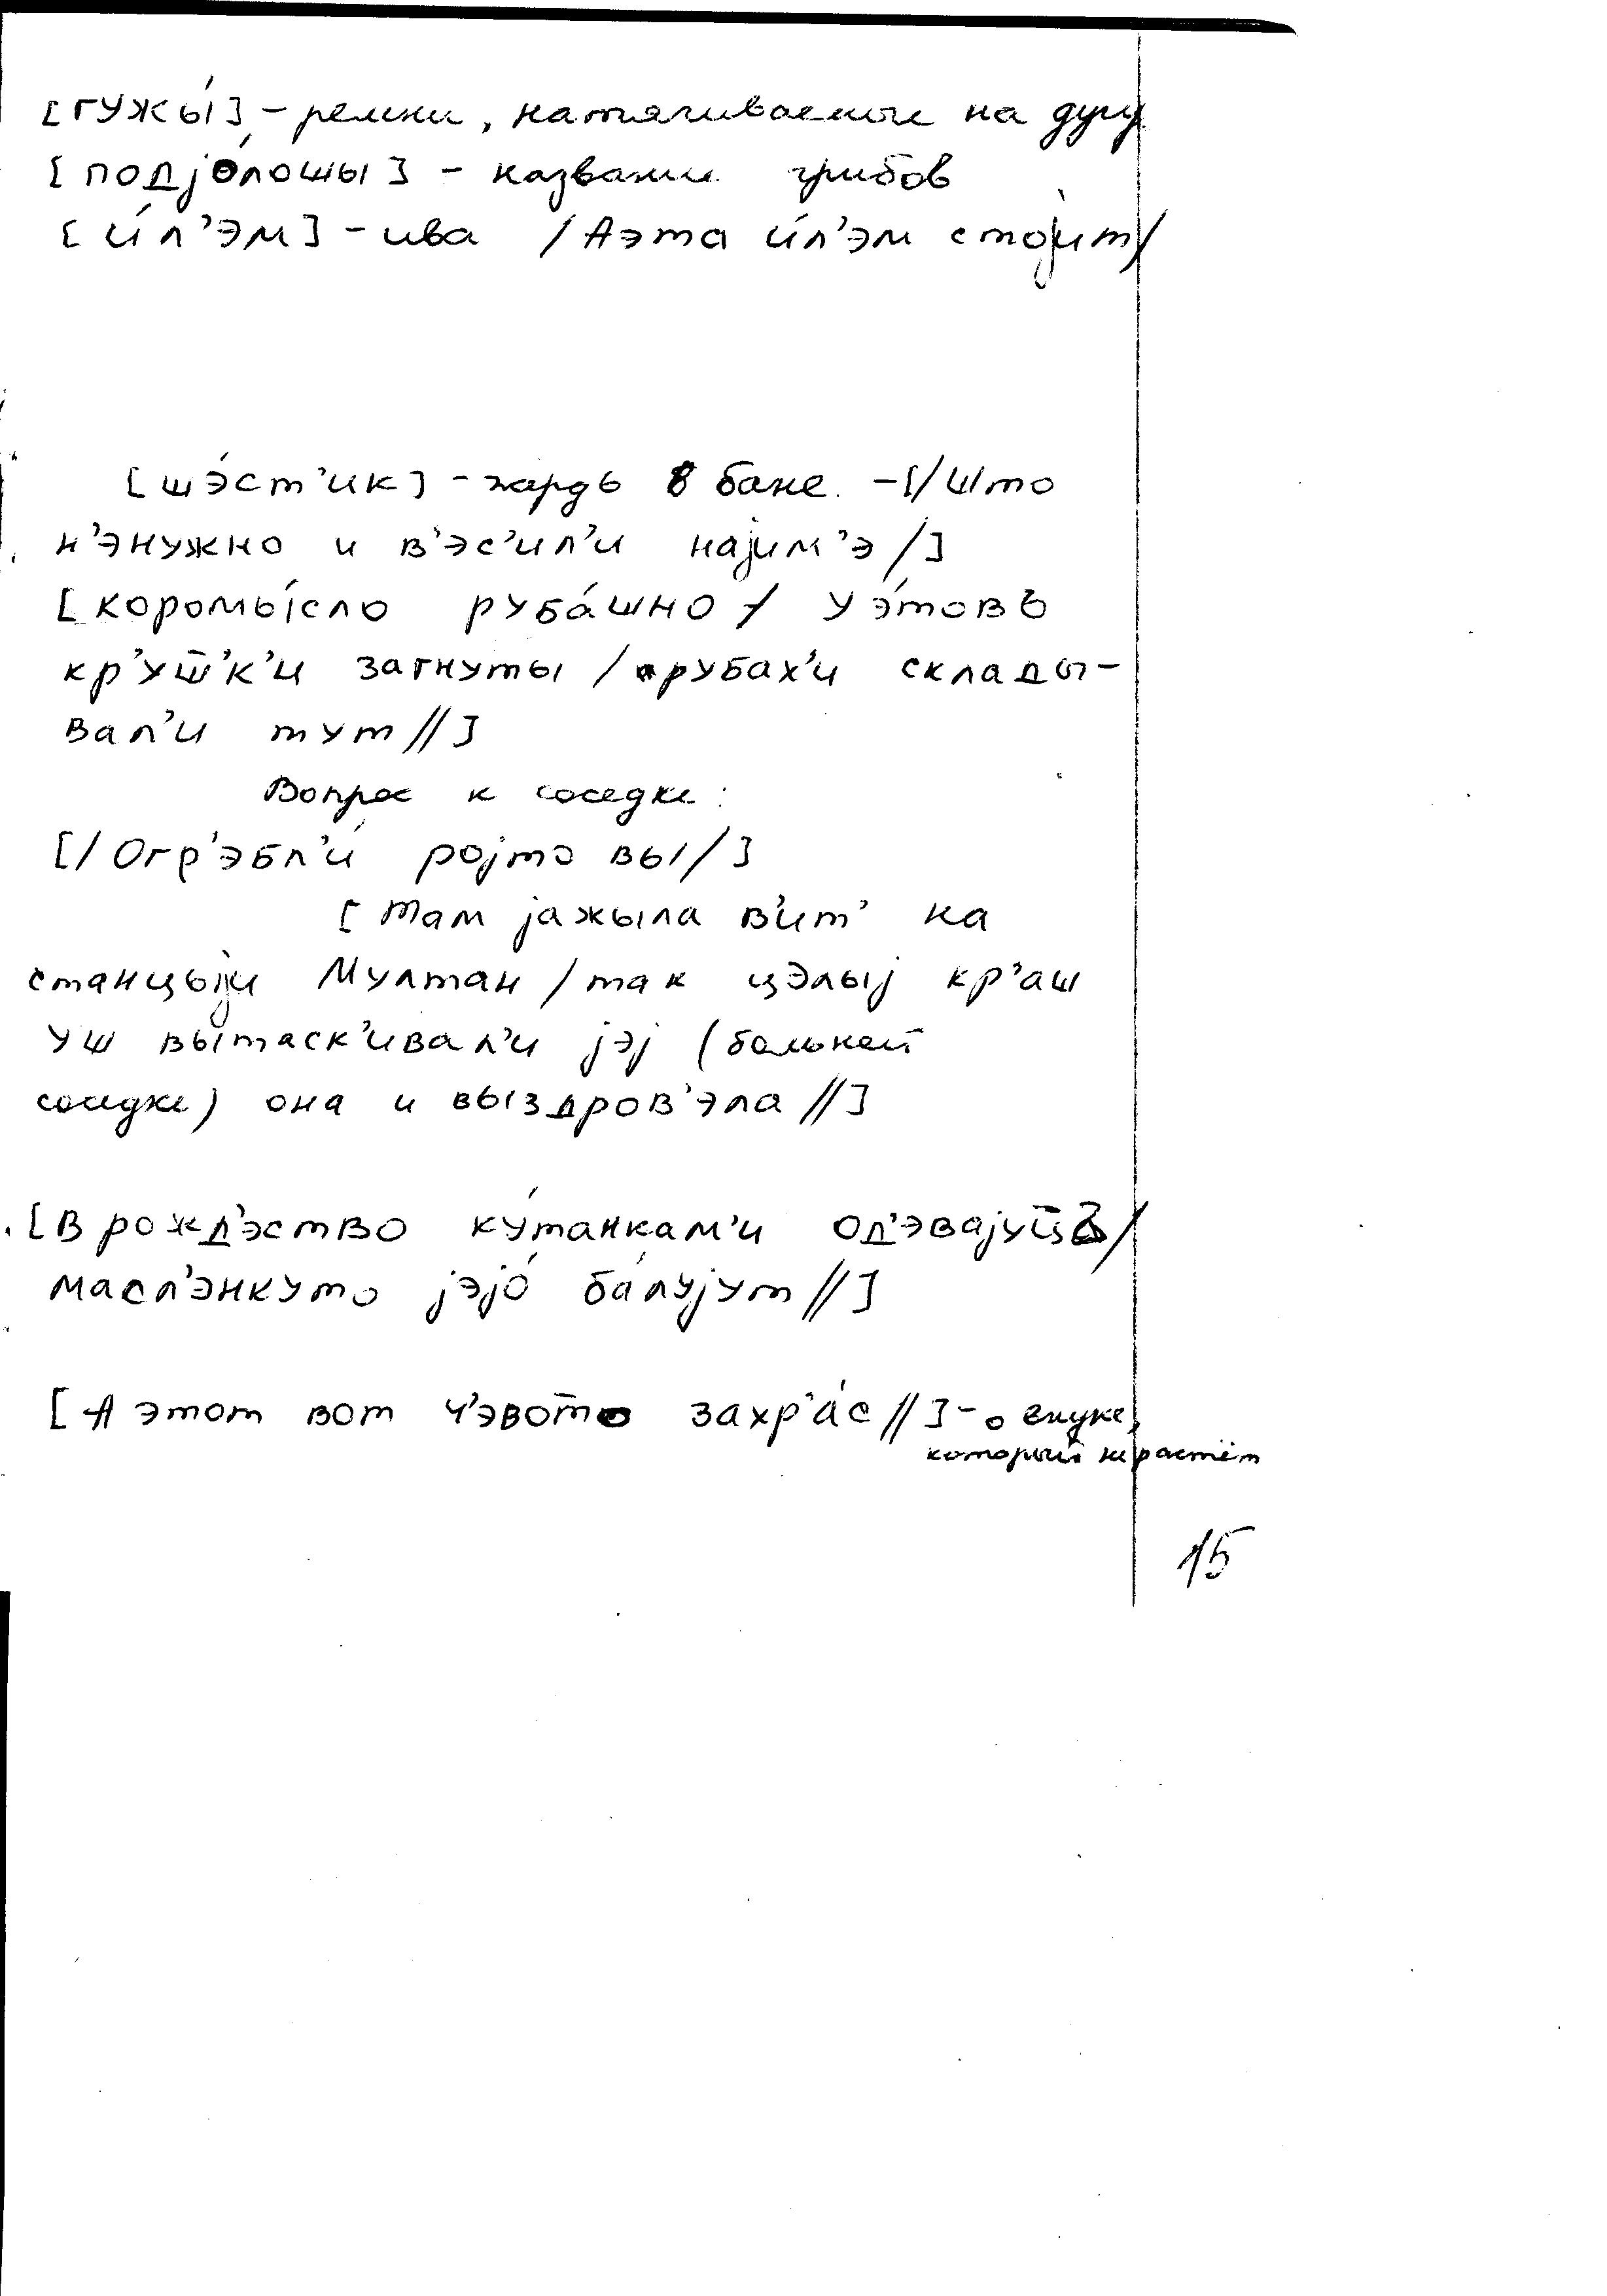 [гужы́] – ремни, натягиваемые на дугу
[подjо́лошы] – название грибов
[и́л’эм] – ива /Аэта и́л’эм стоjит/
[шэ́ст’ик] – жардь в бане. – [/Што
н’энужно и в’эс’ил’и наjим’э/]
[коромы́сло руба́шно/ уэ́товъ
кр’уш̅’к’и загнуты /рубах’и склады-
вал’и тут//]
Вопрос к соседке:
[/Огр’эбл’и́ роjто вы/]
[Там jажыла в’ит’ на
станцыjи Мултан /так цэлыj кр’аш
уш вы́таск’ивал’и jэj (больной
соседке) она и выздров’эла//]
[В рожд’эство ку́танкам’и од’эваjуц̅ъ/
масл’энкуто jэjо́ ба́луjут//]
[А этот вот ч’эвот̅о захр’а́с//] – о внуке,
который не растёт
15